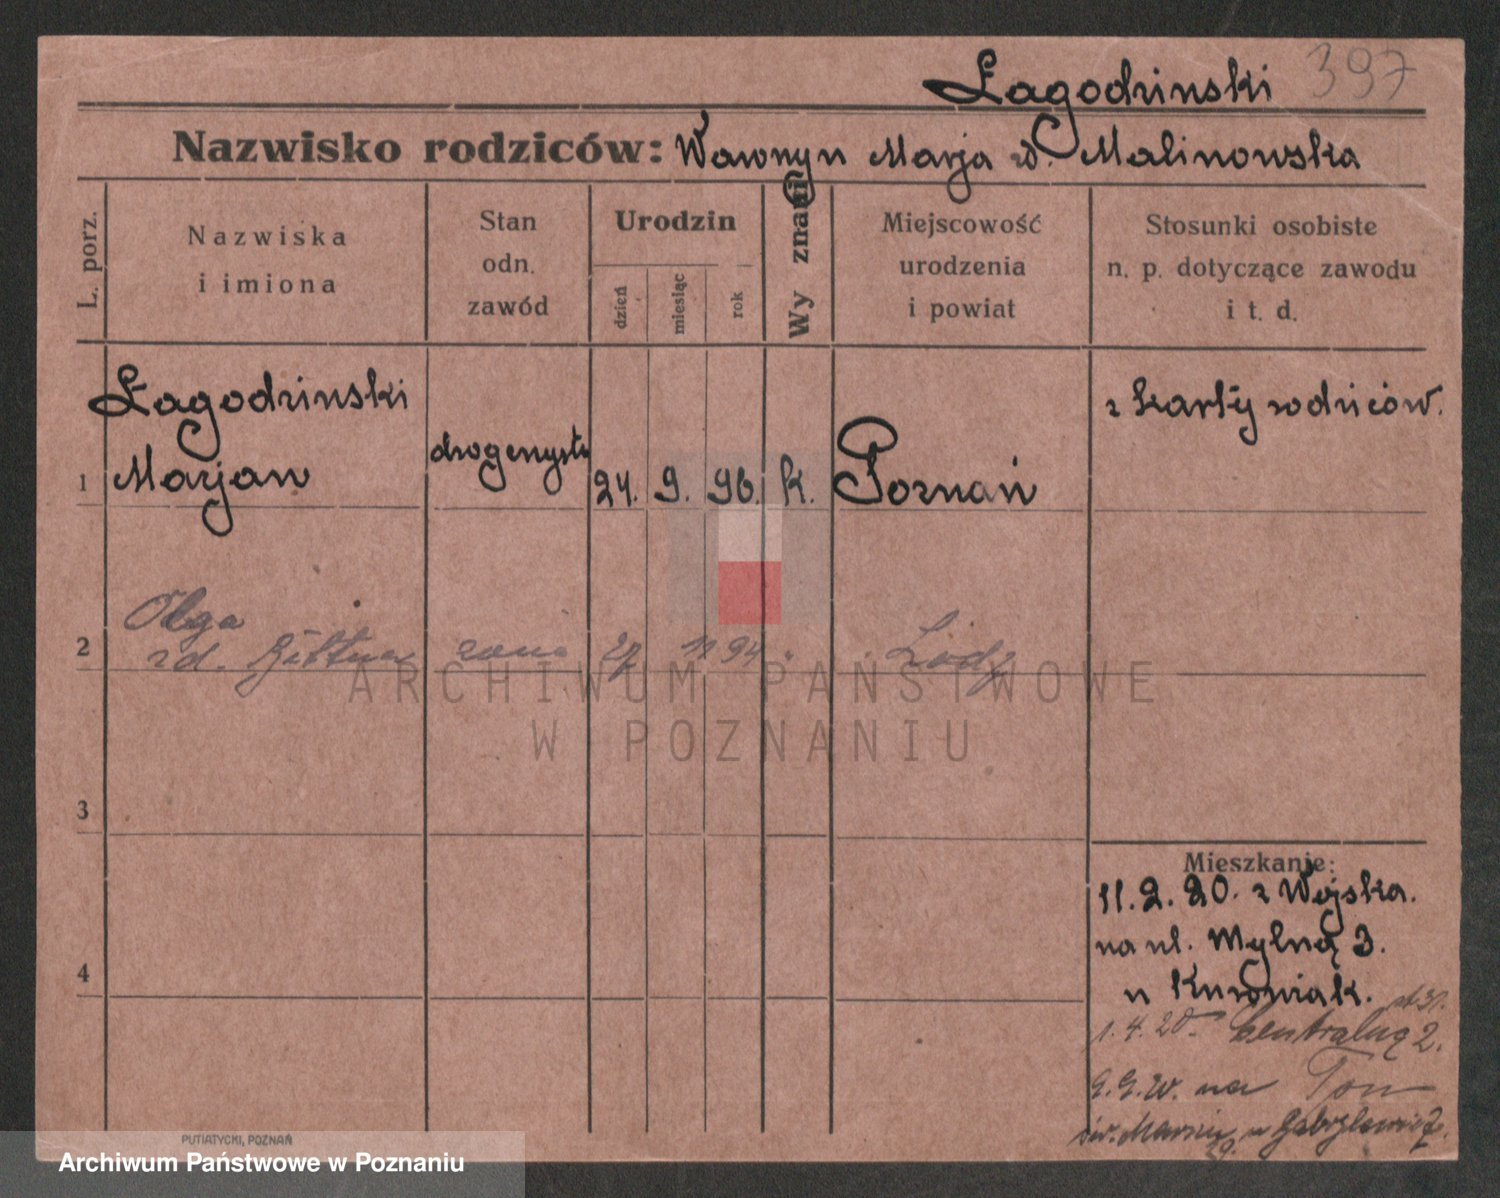 Łagodzinski 397
Nazwisko rodziców: Wawrzyn Marja rd. Malinowska
L. porz.
Nazwiska
i imiona
Stan
odn.
zawód
Urodzin
dzień
miesiąc
rok
Wy znanie
Miejscowość
urodzenia
i powiat
Stosunki osobiste
n. p. dotyczące zawodu
i t. d.
1
Łagodzinski
Marjan
drogerzysta
24. 9. 96. K. Poznań
z karty rodziców.
2
Olga
rd. Bittner
żona 27 11 94 " Łódź
3
4
Mieszkanie:
11.2.20. z Wojska.
na ul. Mylną 3.
u Kurowiak.
1.4.20 Centralną 2.
na
św. Marcin
29.
PUTIATYCKI, POZNAŃ
ARCHIWUM PAŃSTWOWE
W POZNANIU
Archiwum Państwowe w Poznaniu